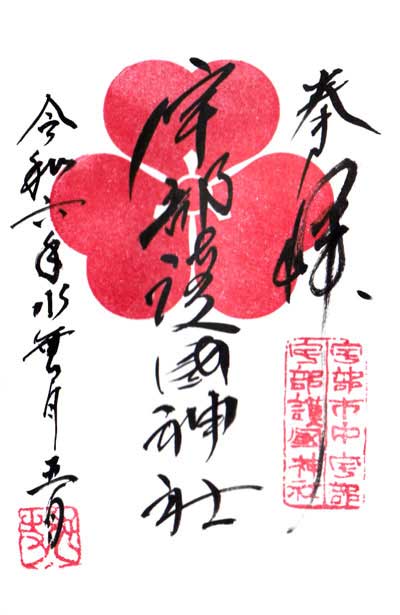 奉拝
宇部市中宇部
宇部護國神社
宇部護國神社
令和六年水無月五日